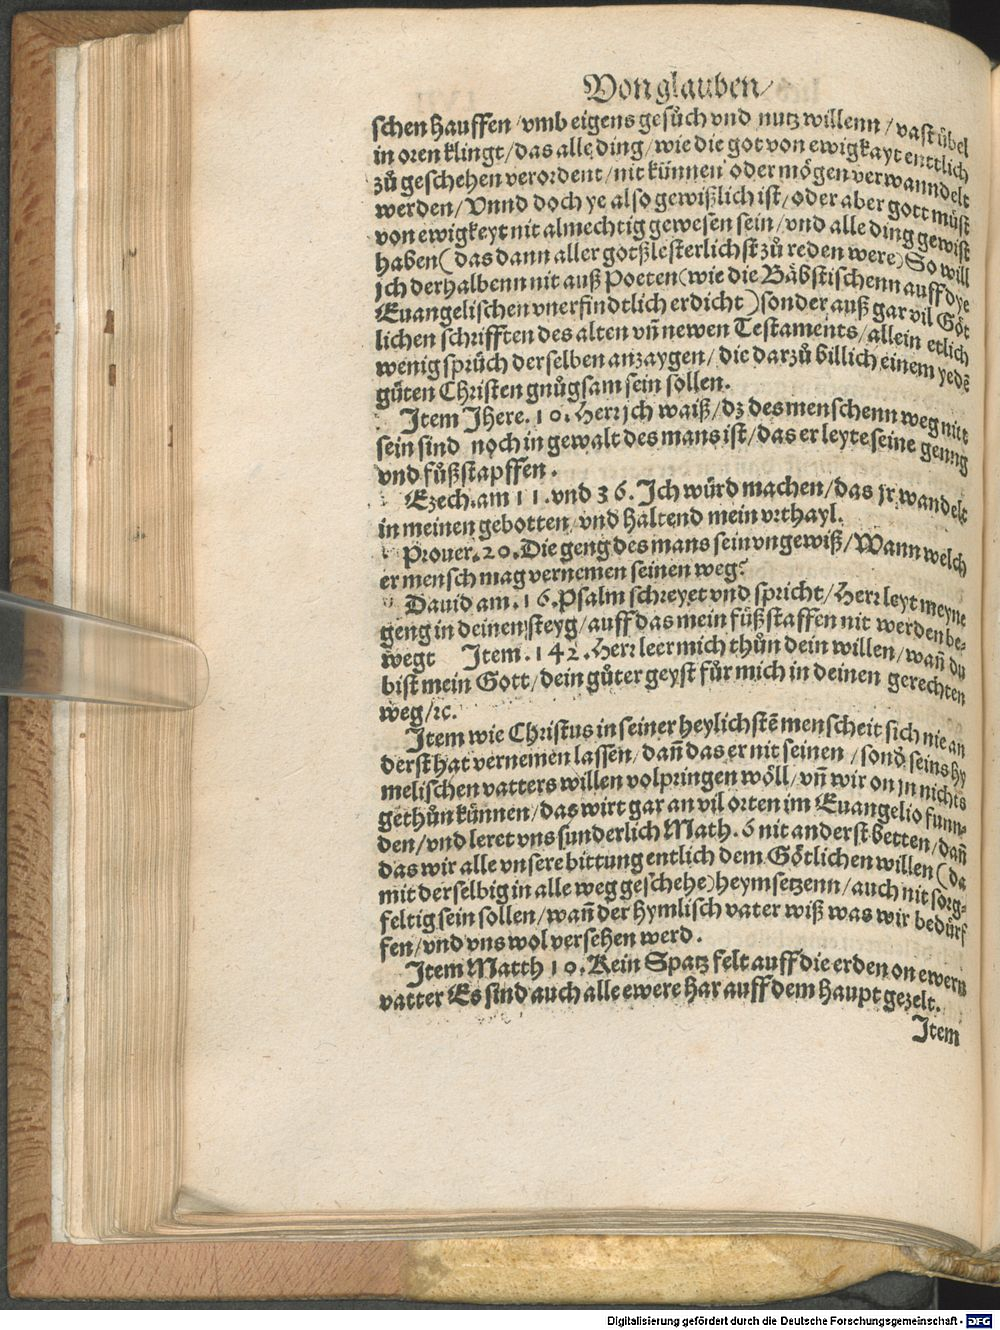 Von glauben/
schen hauffen/vmb eigens gesůch vnd nutz willenn/vast übel
in oren klingt/das alle ding/wie die got von ewigkayt enttlich
zů geschehen verordent/nit künnen oder mögen verwanndelt
werden/Vnnd doch ye also gewißlich ist/oder aber gott můst
von ewigkeyt nit almechtig gewesen sein/vnd alle ding gewist
haben(das dann aller gotßlesterlichst zů reden were)So will
jch derhalbenn nit auß Poeten(wie die Bäbstischenn auff dye
Euangelischen vnerfindtlich erdicht)sonder auß gar vil Göt
lichen schrifften des alten vñ newen Testaments/allein etlich
wenig sprüch derselben anzaygen/die darzů billich einem yedẽ
gůten Christen gnůgsam sein sollen.
Item Jhere. 10. Herr jch waiß/dz des menschenn weg nitt
sein sind noch in gewalt des mans ist/das er leyte seine genng
vnd fůßstapffen.
Ezech. am 11. vnd 36. Ich würd machen/das jr wandelt
in meinen gebotten/vnd haltend mein vrthayl.
Prouer. 20. Die geng des mans sein vngewiß/Wann welch
er mensch mag vernemen seinen weg?
Dauid am. 16. Psalm schreyet vnd spricht/Herr leyt meyne
geng in deinen steyg/auff das mein fůßstaffen nit werden be-
wegt Item. 142. Herr leer mich thůn dein willen/wañ du
bist mein Gott/dein gůter geyst fůr mich in deinen gerechten
weg/ꝛc.
Item wie Christus in seiner heylichstẽ menscheit sich nie an
derst hat vernemen lassen/dañ das er nit seinen/sonđ seins hy
melischen vatters willen volpringen wöll/vñ wir on jn nichts
gethůn künnen/das wirt gar an vil orten im Euangelio funn-
den/vnd leret vns sunderlich Math. 6 nit anderst betten/dañ
das wir alle vnsere bittung entlich dem Götlichen willen(da
mit derselbig in alle weg geschehe)heymsetzenn/auch nit sorg-
feltig sein sollen/wañ der hymlisch vater wiß was wir bedürf
fen/vnd vns wol versehen werd.
Item Matth 10. Kein Spatz felt auff die erden on ewern
vatter Es sind auch alle ewere har auff dem haupt gezelt.
Item
Digitalisierung gefördert durch die Deutsche Forschungsgemeinschaft - DFG